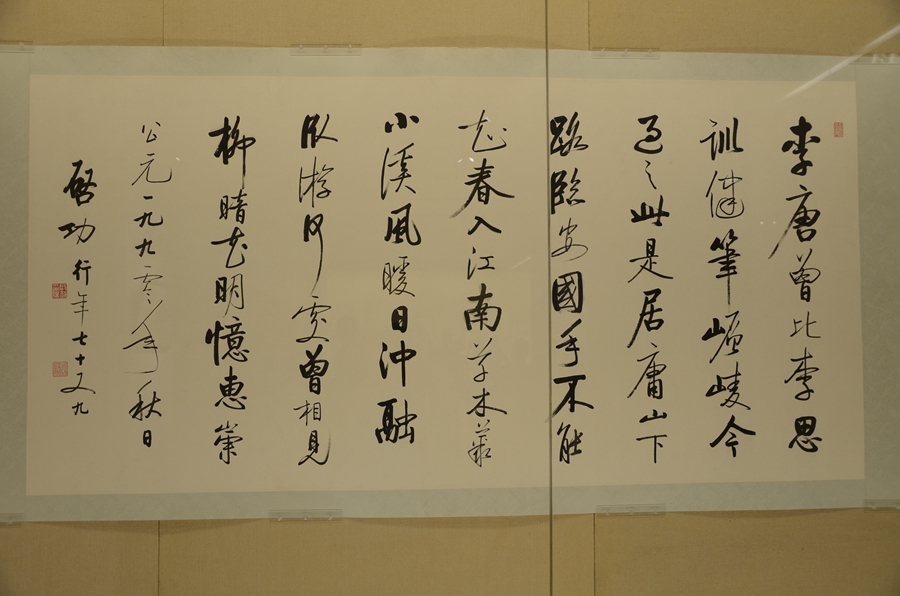 李唐曾比李思
訓健筆崚今
過之此是居庸山下
路臨安國手不能
知春入江南草木叢
小溪風暖日沖融
臥游何處曾相見
柳暗花明憶惠崇
公元一九九零年秋日
啓功行年七十又九